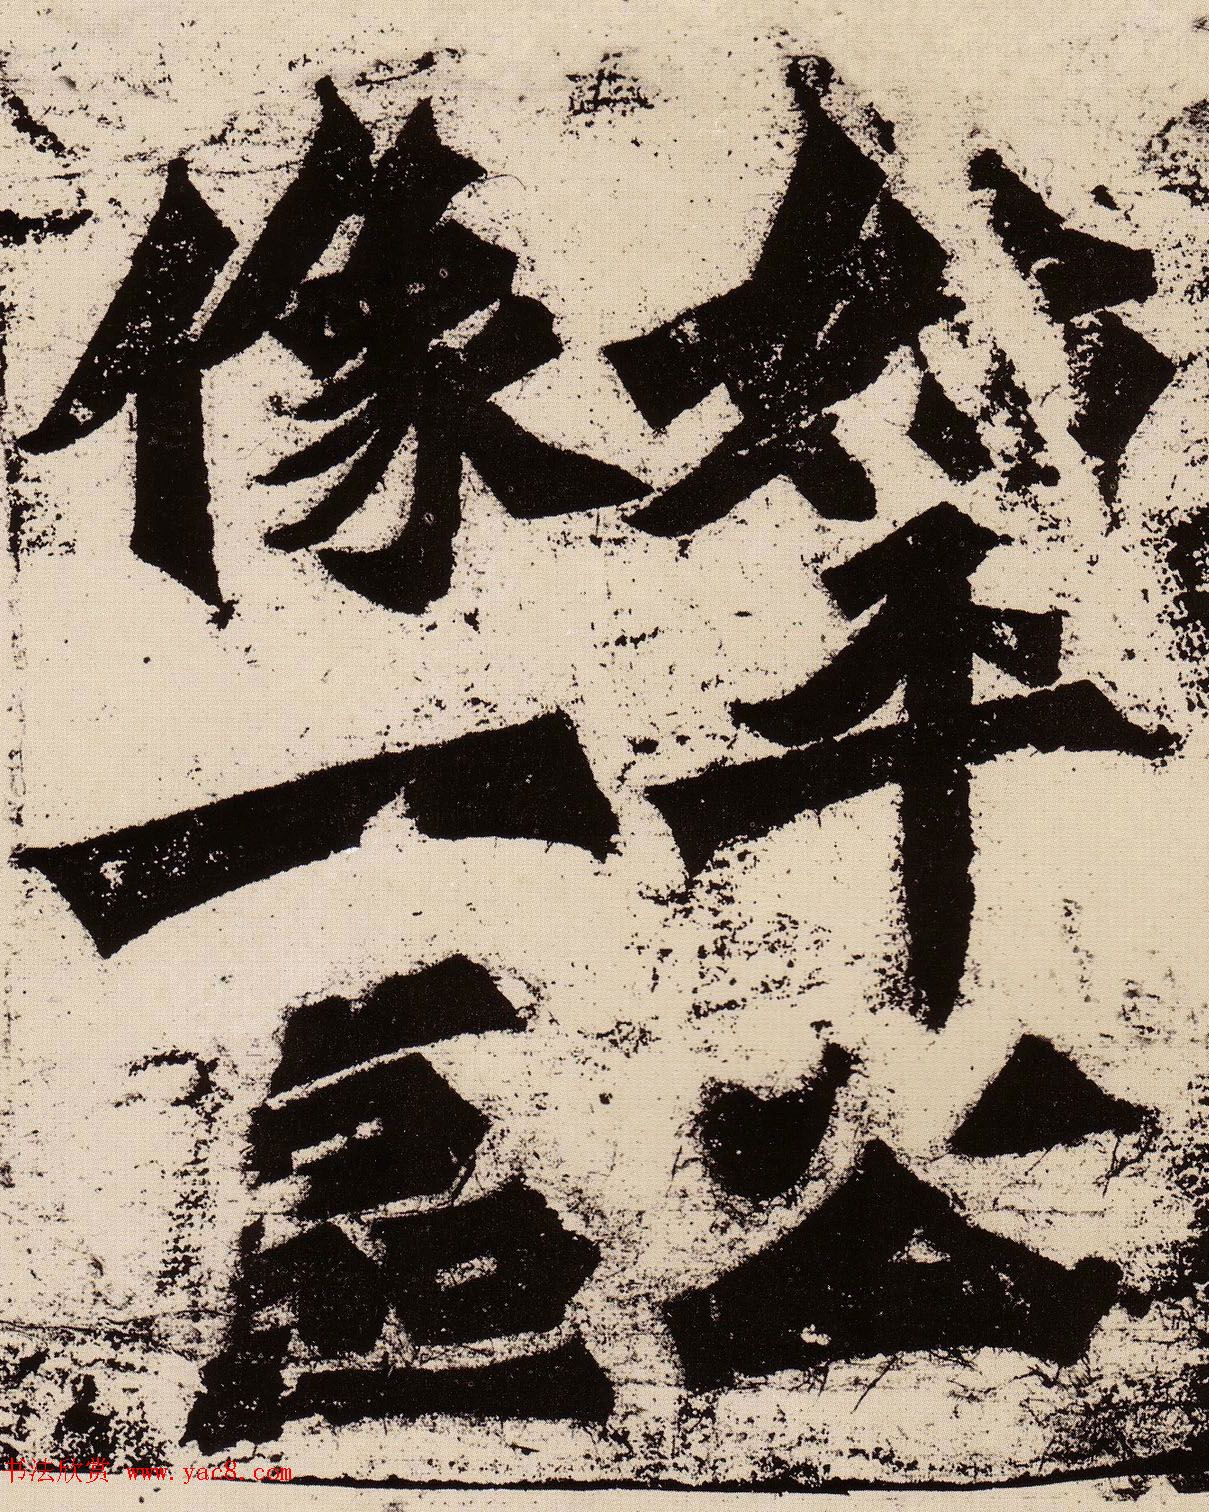 始平公
像一區
书法欣赏 www.yac8.com